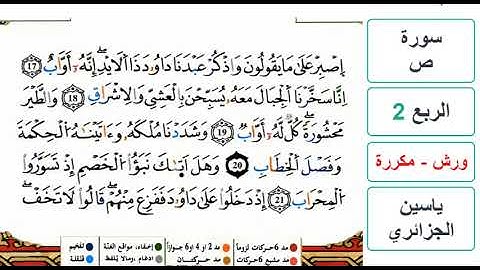 اِصْبِرْ عَلَىٰ مَا يَقُولُونَ وَاذْكُرْ عَبْدَنَا دَاوُۥدَ ذَا اَلَايْدِۖ إِنَّهُۥٓ أَوَّابٌ 17
اِنَّا سَخَّرْنَا اَلْجِبَالَ مَعَهُۥ يُسَبِّحْنَ بِالْعَشِيِّ وَالِاشْرَاقِ 18 وَالطَّيْرَ
مَحْشُورَةٗۖ كُلّٞ لَّهُۥٓ أَوَّابٞ 19 وَشَدَدْنَا مُلْكَهُۥ وَءَاتَيْنَٰهُ اُلْحِكْمَةَ
وَفَصْلَ اَلْخِطَابِ 20 وَهَلَ اَتٰىٰكَ نَبَؤُاْ اُلْخَصْمِ إِذْ تَسَوَّرُواْ
اُلْمِحْرَابَ 21 إِذْ دَخَلُواْ عَلَىٰ دَاوُۥدَ فَفَزِعَ مِنْهُمْۖ قَالُواْ لَا تَخَفْۖ
سورة
ص
الربع 2
ورش - مكررة
ياسين
الجزائري
مد 6 حركات لزوماً
مد 2 أو 4 أو 6 جوازاً
إخفاء، مواقع الغنة
تفخيم
مد مشبع 6 حركات
مد حركتان
ادغام، وما لا يلفظ
قلقلة